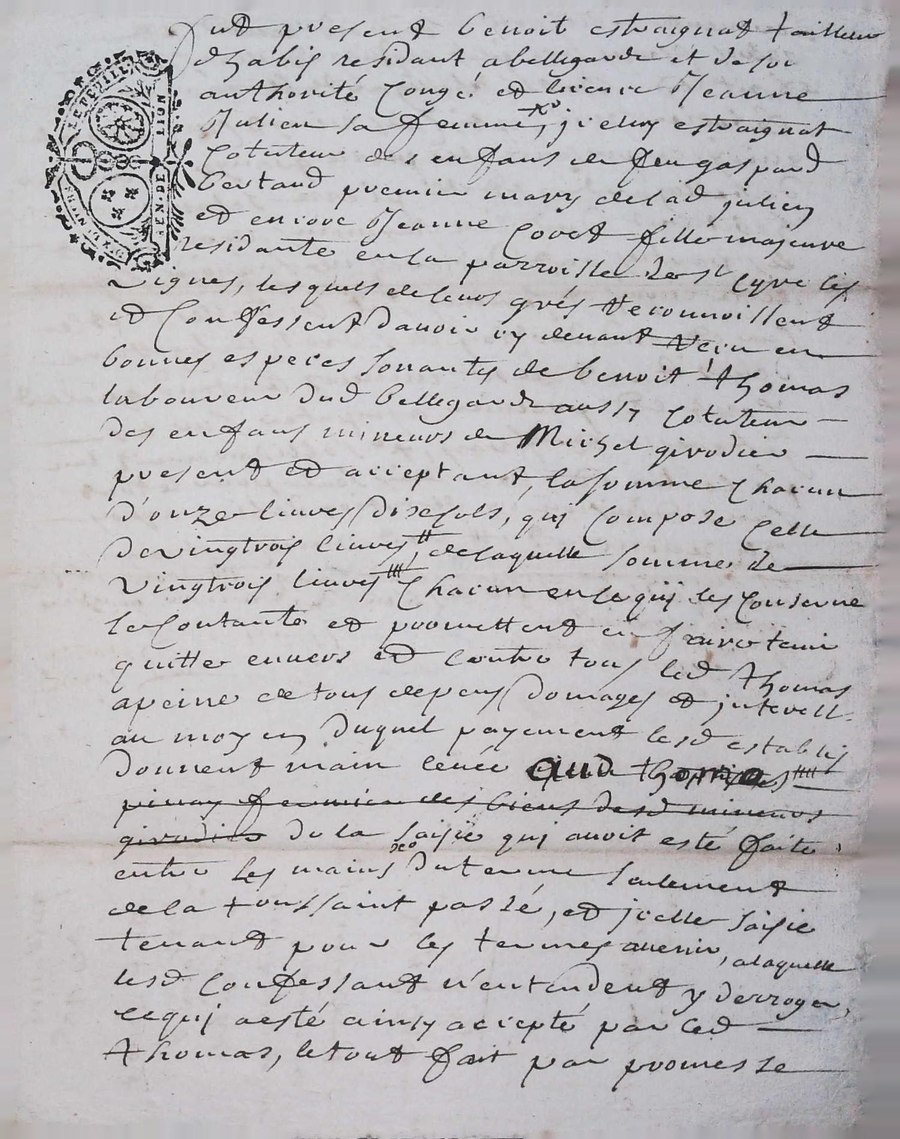 GEN. DE LION
Fut present benoit estraignat tailleur
dhabis residant a bellegarde et de son
authorité Congé et licence Jeanne
Julien sa femme, iceluy estraignat
Cotuteur des enfans de feu gaspard
bertaud premier mary de lad julien
et encore Jeanne Covet fille majeure
residante en la parroisse de st Cyre les
vignes, lesquels de leurs grés reconnoissent
et Confessent d'avoir cy devant reçu en
bonnes especes sonantes de benoit thomas
laboureur dud bellegarde aussy Cotuteur
des enfans mineurs de Michel girodier
present et acceptant, la somme Chacun
d'onze livres dix sols, qui Compose Celle
de vingtrois livres, de laquelle somme de
vingtrois livres Chacun en ce qui les Conserne
le Contante et promettent en faire tenir
quitte envers et contre tous led thomas
a peine de tous depens domages et interest
au moyen duquel payement lesd establis
donnent main levée aud thomas
pinay fermier des biens desd mineurs
girodier de la saisie qui avoit esté faite
entre ses mains du terme seulement
de la toussaint passé, et icelle saisie
tenant pour les termes avenir, a laquelle
lesd Confessant n'entendent y derroger,
ce qui a esté ainsy accepté par led
thomas, le tout fait par promesse